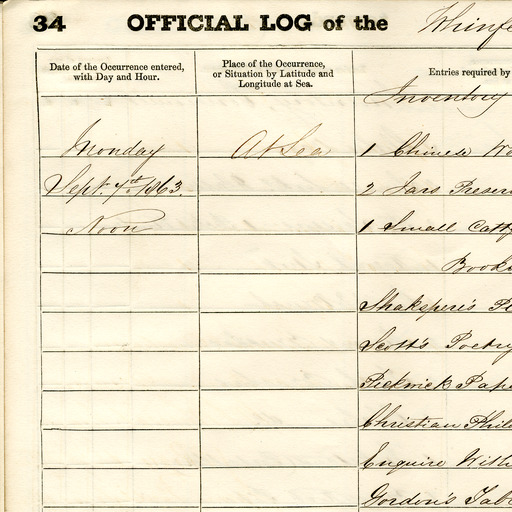 34 OFFICIAL LOG of the
Date of the Occurrence entered, with Day and Hour.
Place of the Occurrence, or Situation by Latitude and Longitude at Sea.
Entries required by
Inventory
Monday At Sea 1 Chinese
Sept. 7th 1863. 2 Jars
Noon 1 Small
Books
Shakspere's
Scott's Poetry
Pickwick
Christian
Enquire
Gordon's